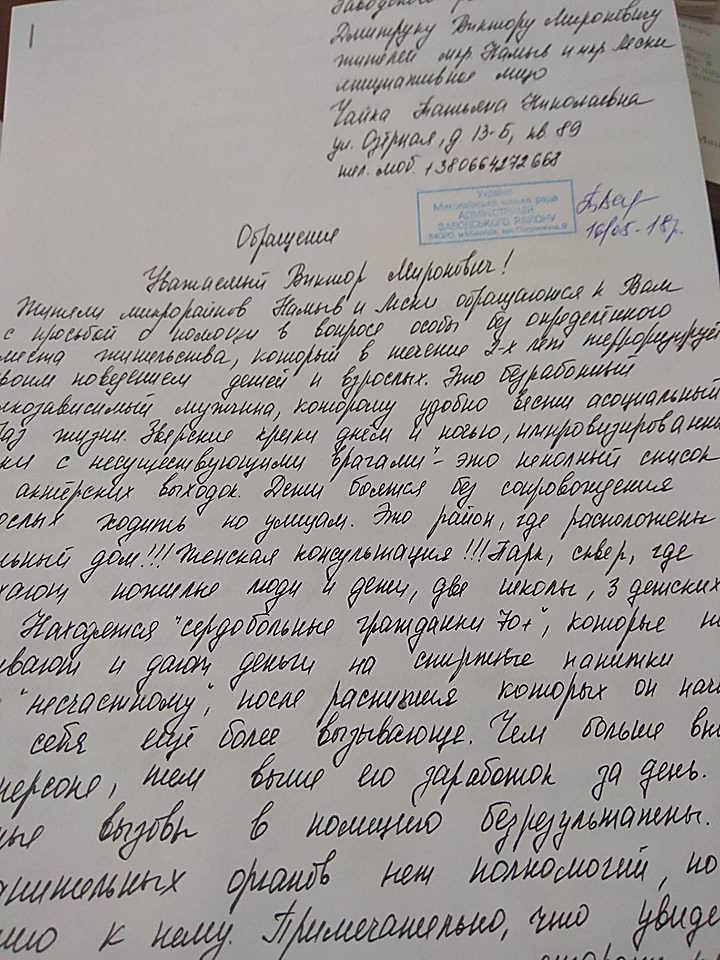 Заводского
Дмитруку Виктору Мироновичу
жителей мкр Намыв и мкр Лески
инициативное лицо
Чайка Татьяна Николаевна
ул. Озёрная, д 13-Б, кв 89
тел. моб. +380664272668
Україна
Миколаївська міська рада
АДМІНІСТРАЦІЯ
ЗАВОДСЬКОГО РАЙОНУ
16/05-18р.
Обращение
Уважаемый Виктор Миронович!
Жители микрорайнов Намыв и Лески обращаются к Вам
с просьбой о помощи в вопросе особы без определённого
места жительства, который в течение 2-х лет терроризирует
своим поведением детей и взрослых. Это безработный
лкозависимый мужчина, которому удобно вести асоциальный
раз жизни. Зверские крики днём и ночью, импровизированн
ки с несуществующими "врагами" - это неполный список
актёрских выходок. Дети боятся без сопровождения
ослых ходить по улицам. Это район, где расположены
льный дом!!! Женская консультация!!! Парк, сквер, где
ыхают пожилые люди и дети, две школы, 3 детских
Находятся "сердобольные гражданки 70+", которые п
вают и дают деньги на спиртные напитки
"несчастному", после распития которых он начи
себя ещё более вызывающе. Чем больше вн
персоне, тем выше его заработок за день.
ные вызовы в полицию безрезультатны.
анительных органов нет полномочий, по
нию к нему. Примечательно, что увиде